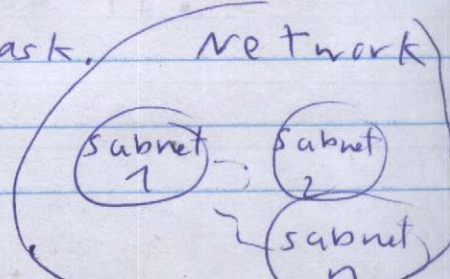 ask. Network
subnet subnet
1 2
subnet
n